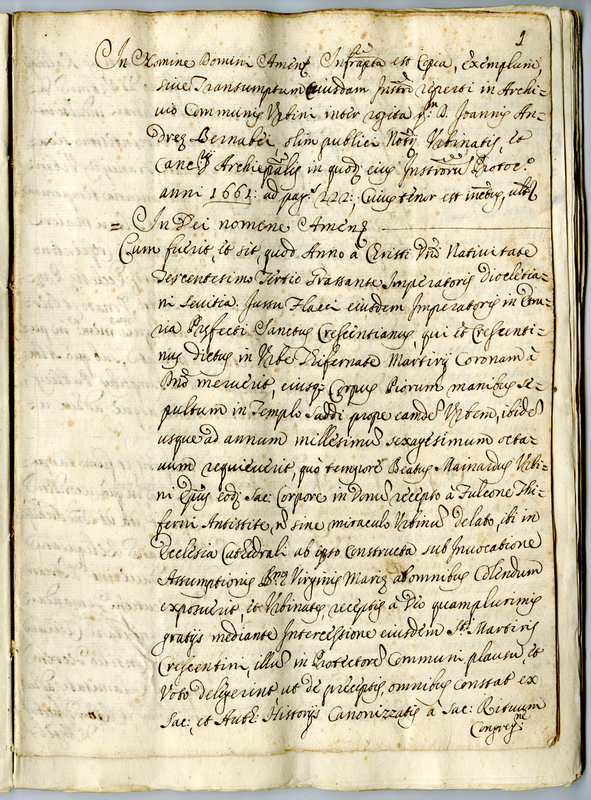 1
In Nomine Domini Amen; Infrapta est Copia, exemplum,
sive Transumptum Cuiusdam Instrī reperti in Archi-
vio Communis Urbini inter rogita q:m D. Joannis An-
dreę Bernabei, olim publici Notrij Urbinatis, et
Canc:rij Archiepālis in quodā eius Instrōrū Protoc:o
anni 1661: ad pag:s 222: Cuius tenor est
= In Dei nomene Amen;
Cum fuerit, et sit, quod Anno à Christi Dnī Nativitate
Tescentesimo Tertio Grassante Imperatoris Diocletia-
ni Sevitia. Jussu Flacci eiusdem Imperatoris in
ria Prefecti Sanctus Crescentianus, qui et Crescenti-
nus dictus, in Urbe Thifernate Martirij Coronam à
Dnō meruerit, eiusq; Corpus Piorum manibus se-
pultum in Templo Saddi prope eamdē Urbem, ibidē
usque ad annum millesimū sexagesimum octa-
vum requieverit, quò tempore Beatus Mainardus Urbi-
ni Epūs eodē Sac: Corpore in Donū recepto à Fulcone Thi-
ferni Antistite, nō sine miraculo Urbinū delato, ibi in
Ecclesia Cathedrali ab ipso Constructa sub Invocatione
Assumptionis B:mę Virginis Marię ab omnibus Colendum
exposuerit, et Urbinates, receptis à Deo quamplurimis
gratijs mediante Intercessione eiusdem S:ti Martiris
Crescentini, illū in Protectorē Communi plausu, et
Voto delegerint, ut de preceptis omnibus Constat ex
Sac: et Auth: Historijs Canonizzatis à Sac: Rituum
Congreg:ne